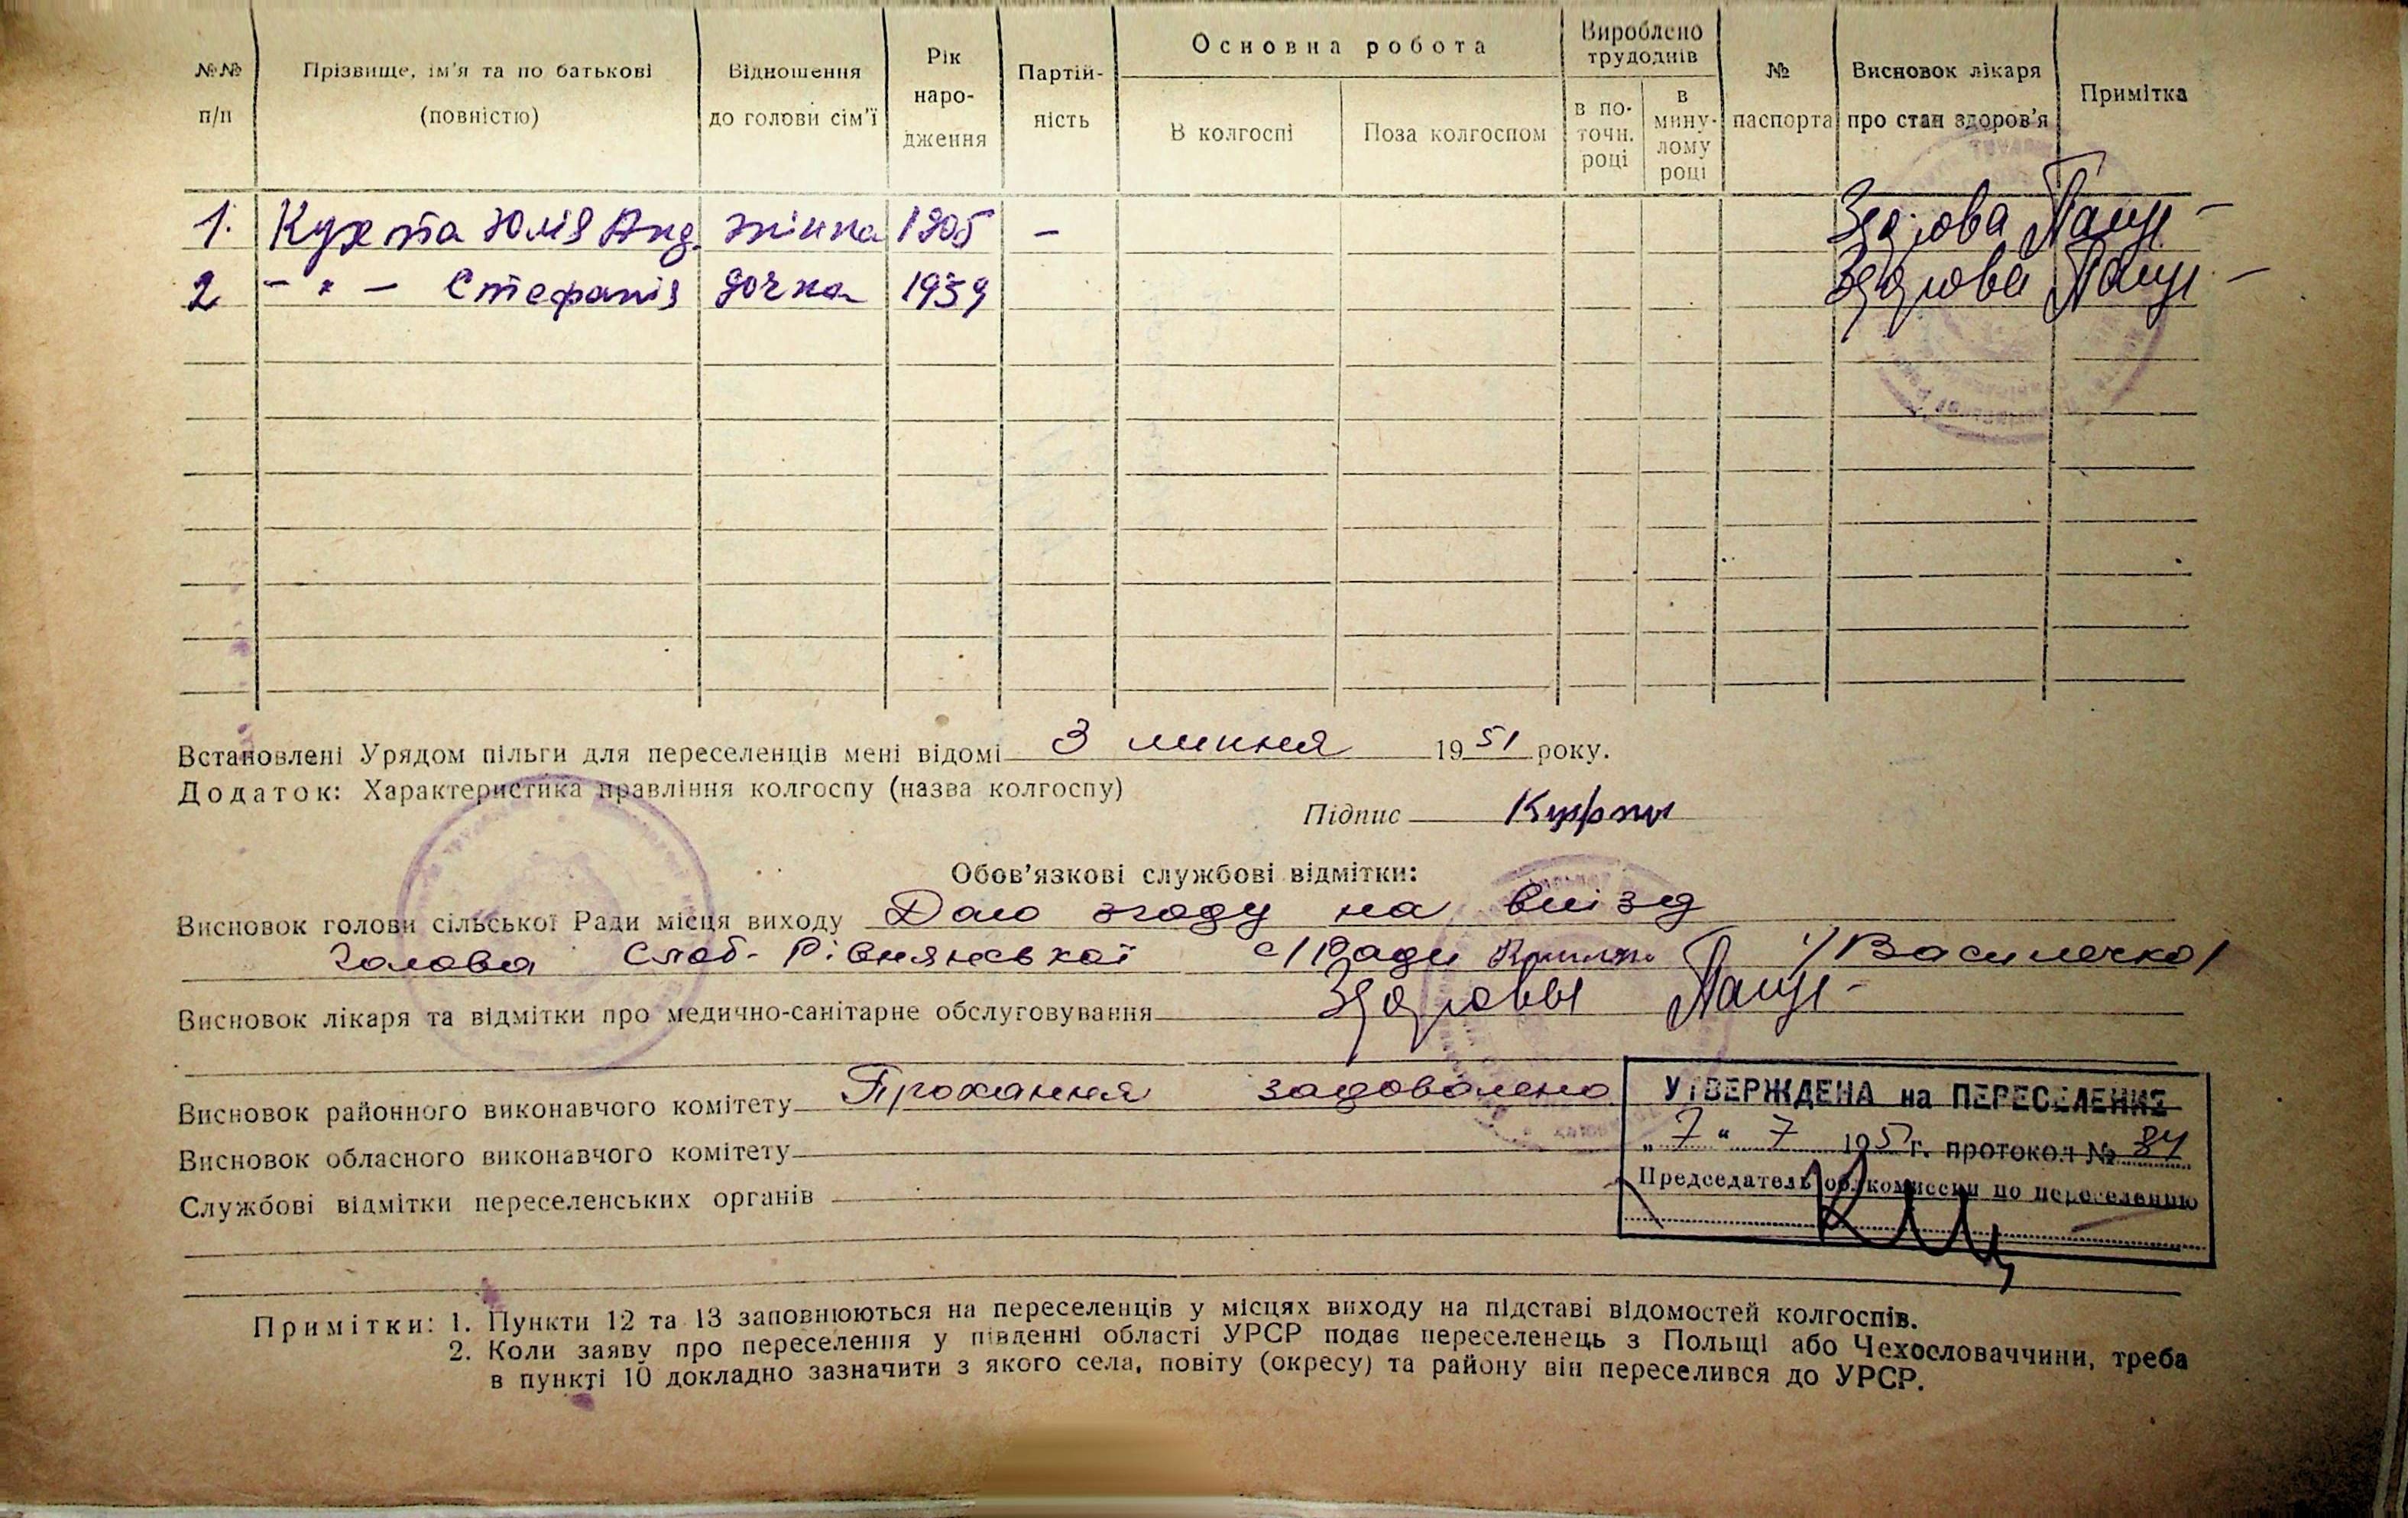 №№ п/п | Прізвище, ім'я та по батькові (повністю) | Відношення до голови сім'ї | Рік народження | Партійність | Основна робота | Вироблено трудоднів | № паспорта | Висновок лікаря про стан здоров'я | Примітка
В колгоспі | Поза колгоспом | в поточн. році | в минулому році
1. Кухта Юлія Анд. жінка 1905 — Здорова
2 — " — Стефанія дочка 1939 Здорова
Встановлені Урядом пільги для переселенців мені відомі 3 липня 1951 року.
Додаток: Характеристика правління колгоспу (назва колгоспу)
Підпис
Обов'язкові службові відмітки:
Висновок голови сільської Ради місця виходу Даю згоду на виїзд
Голова Слоб-Рівнянської с/Ради /Василечко/
Висновок лікаря та відмітки про медично-санітарне обслуговування Здоровы
Висновок районного виконавчого комітету Прохання задоволено
УТВЕРЖДЕНА на ПЕРЕСЕЛЕНИЕ
„7" 7 195 г. протокол № 84
Председатель обл. комиссии по переселению
Висновок обласного виконавчого комітету
Службові відмітки переселенських органів
Примітки: 1. Пункти 12 та 13 заповнюються на переселенців у місцях виходу на підставі відомостей колгоспів.
2. Коли заяву про переселення у південні області УРСР подає переселенець з Польщі або Чехословаччини, треба
в пункті 10 докладно зазначити з якого села, повіту (окресу) та району він переселився до УРСР.